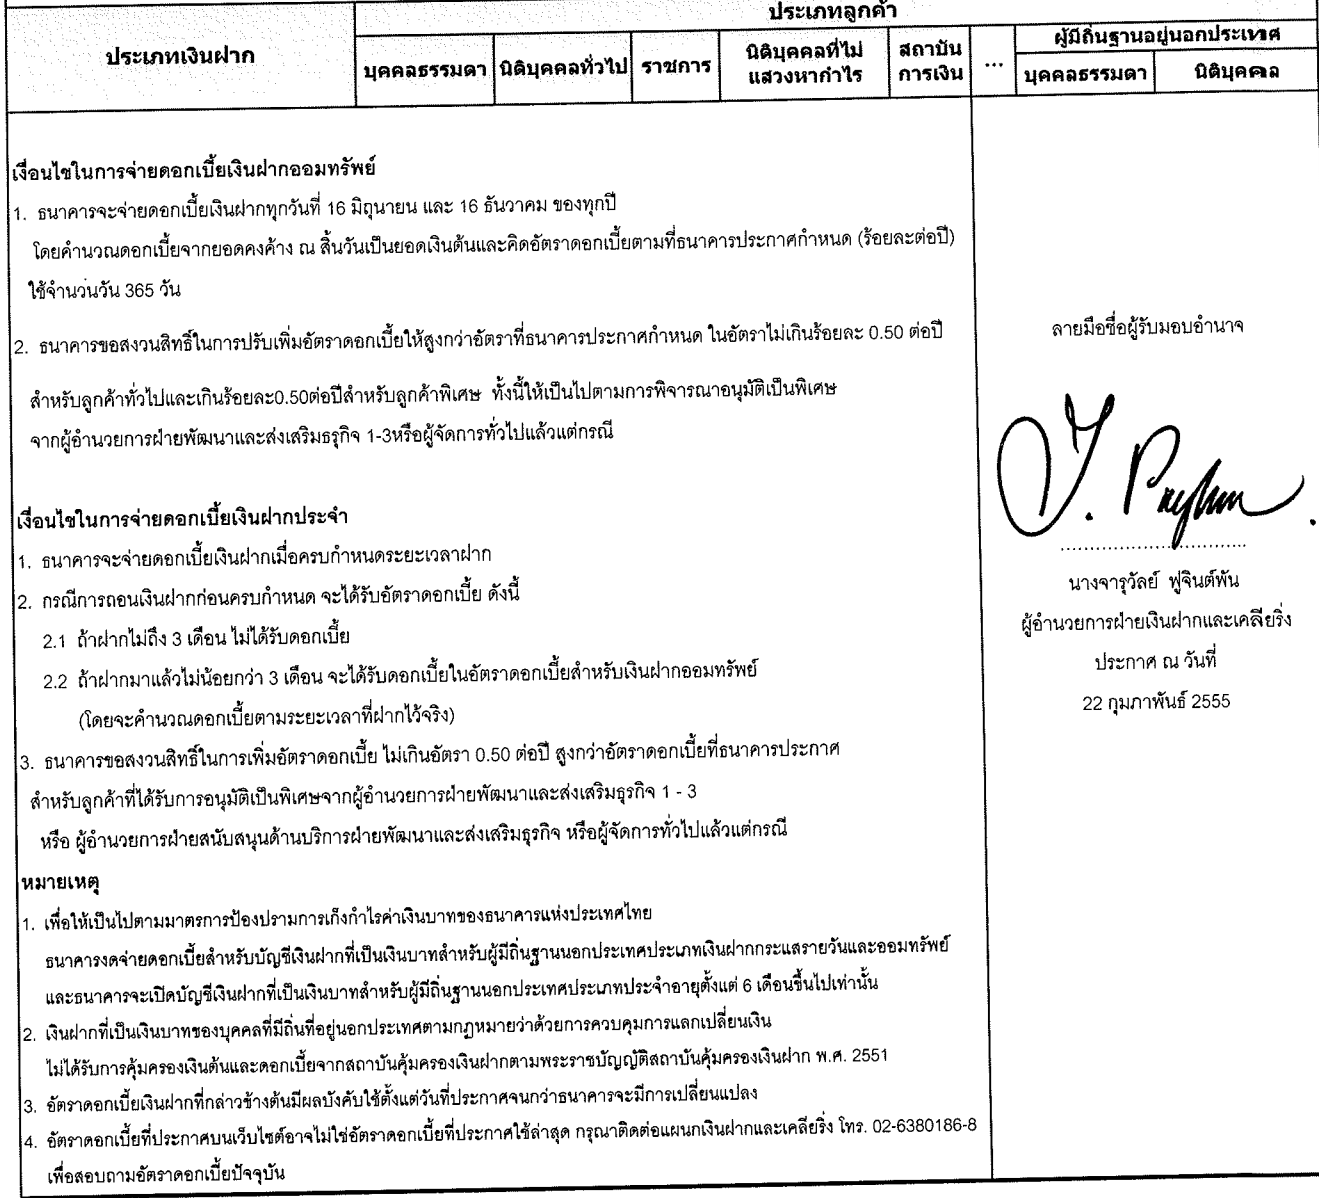 ประเภทลูกค้า
ประเภทเงินฝาก
บุคคลธรรมดา นิติบุคคลทั่วไป ราชการ นิติบุคคลที่ไม่แสวงหากำไร สถาบันการเงิน ... ผู้มีถิ่นฐานอยู่นอกประเทศ
บุคคลธรรมดา นิติบุคคล
เงื่อนไขในการจ่ายดอกเบี้ยเงินฝากออมทรัพย์
1. ธนาคารจะจ่ายดอกเบี้ยเงินฝากทุกวันที่ 16 มิถุนายน และ 16 ธันวาคม ของทุกปี
โดยคำนวณดอกเบี้ยจากยอดคงค้าง ณ สิ้นวันเป็นยอดเงินต้นและคิดอัตราดอกเบี้ยตามที่ธนาคารประกาศกำหนด (ร้อยละต่อปี)
ใช้จำนวนวัน 365 วัน
2. ธนาคารขอสงวนสิทธิ์ในการปรับเพิ่มอัตราดอกเบี้ยให้สูงกว่าอัตราที่ธนาคารประกาศกำหนด ในอัตราไม่เกินร้อยละ 0.50 ต่อปี
สำหรับลูกค้าทั่วไปและเกินร้อยละ0.50ต่อปีสำหรับลูกค้าพิเศษ ทั้งนี้ให้เป็นไปตามการพิจารณาอนุมัติเป็นพิเศษ
จากผู้อำนวยการฝ่ายพัฒนาและส่งเสริมธรุกิจ 1-3หรือผู้จัดการทั่วไปแล้วแต่กรณี
เงื่อนไขในการจ่ายดอกเบี้ยเงินฝากประจำ
1. ธนาคารจะจ่ายดอกเบี้ยเงินฝากเมื่อครบกำหนดระยะเวลาฝาก
2. กรณีการถอนเงินฝากก่อนครบกำหนด จะได้รับอัตราดอกเบี้ย ดังนี้
2.1 ถ้าฝากไม่ถึง 3 เดือน ไม่ได้รับดอกเบี้ย
2.2 ถ้าฝากมาแล้วไม่น้อยกว่า 3 เดือน จะได้รับดอกเบี้ยในอัตราดอกเบี้ยสำหรับเงินฝากออมทรัพย์
(โดยจะคำนวณดอกเบี้ยตามระยะเวลาที่ฝากไว้จริง)
3. ธนาคารขอสงวนสิทธิ์ในการเพิ่มอัตราดอกเบี้ย ไม่เกินอัตรา 0.50 ต่อปี สูงกว่าอัตราดอกเบี้ยที่ธนาคารประกาศ
สำหรับลูกค้าที่ได้รับการอนุมัติเป็นพิเศษจากผู้อำนวยการฝ่ายพัฒนาและส่งเสริมธุรกิจ 1 - 3
หรือ ผู้อำนวยการฝ่ายสนับสนุนด้านบริการฝ่ายพัฒนาและส่งเสริมธุรกิจ หรือผู้จัดการทั่วไปแล้วแต่กรณี
หมายเหตุ
1. เพื่อให้เป็นไปตามมาตรการป้องปรามการเก็งกำไรค่าเงินบาทของธนาคารแห่งประเทศไทย
ธนาคารงดจ่ายดอกเบี้ยสำหรับบัญชีเงินฝากที่เป็นเงินบาทสำหรับผู้มีถิ่นฐานนอกประเทศประเภทเงินฝากกระแสรายวันและออมทรัพย์
และธนาคารจะเปิดบัญชีเงินฝากที่เป็นเงินบาทสำหรับผู้มีถิ่นฐานนอกประเทศประเภทประจำอายุตั้งแต่ 6 เดือนขึ้นไปเท่านั้น
2. เงินฝากที่เป็นเงินบาทของบุคคลที่มีถิ่นที่อยู่นอกประเทศตามกฎหมายว่าด้วยการควบคุมการแลกเปลี่ยนเงิน
ไม่ได้รับการคุ้มครองเงินต้นและดอกเบี้ยจากสถาบันคุ้มครองเงินฝากตามพระราชบัญญัติสถาบันคุ้มครองเงินฝาก พ.ศ. 2551
3. อัตราดอกเบี้ยเงินฝากที่กล่าวข้างต้นมีผลบังคับใช้ตั้งแต่วันที่ประกาศจนกว่าธนาคารจะมีการเปลี่ยนแปลง
4. อัตราดอกเบี้ยที่ประกาศบนเว็บไซต์อาจไม่ใช่อัตราดอกเบี้ยที่ประกาศใช้ล่าสุด กรุณาติดต่อแผนกเงินฝากและเคลียริ่ง โทร. 02-6380186-8
เพื่อสอบถามอัตราดอกเบี้ยปัจจุบัน
ลายมือชื่อผู้รับมอบอำนาจ
................................
นางจารุวัลย์ ฟูจินต์พัน
ผู้อำนวยการฝ่ายเงินฝากและเคลียริ่ง
ประกาศ ณ วันที่
22 กุมภาพันธ์ 2555